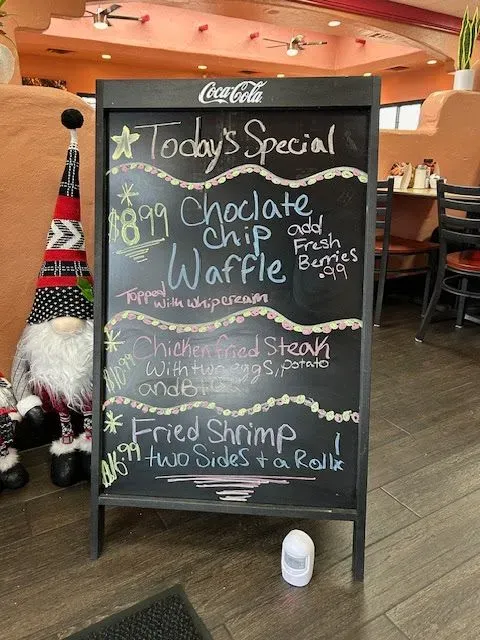 Coca-Cola
Today's Special
$8.99
Choclate
chip
Waffle
add
Fresh
Berries
.99
Topped with whip cream
Chicken fried Steak
$10.99
With two eggs, potato
and
Fried Shrimp
$16.99
two Sides + a Roll